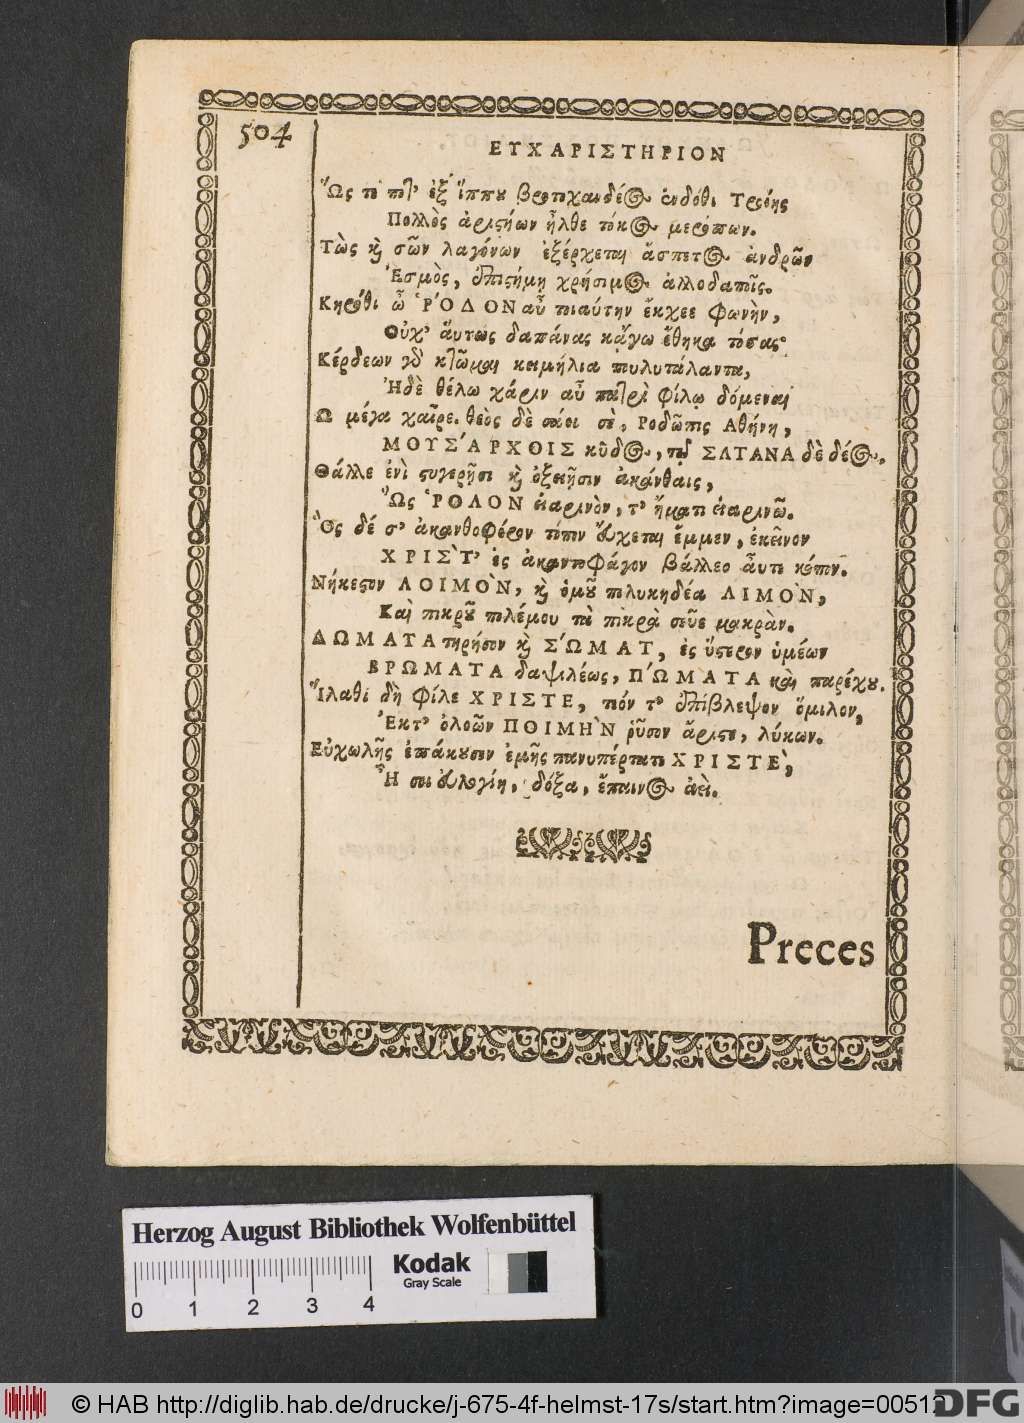 504
ΕΥΧΑΡΙΣΤΗΡΙΟΝ
Ὥς το ποτ' ἐξ ἵππου βροτοχανδέος ἔνδοθι Τροίης
Πολλὸς ἀριστήων ἦλθε τόκος μερόπων.
Τὼς καὶ σῶν λαγόνων ἐξέρχεται ἄσπετος ἀνδρῶν
Ἑσμὸς, ἐπιστήμῃ χρήσιμος ἀλλοδαποῖς.
Κηρόθι ὦ ῬΟΔΟΝ αὖ τοιαύτην ἔκχεε φωνὴν,
Οὐχ' αὕτως δαπάνας κᾄγω ἔθηκα τόσας·
Κέρδεων γδ κτῶμαι κειμήλια πολυτάλαντα,
Ἠδὲ θέλω χάριν αὖ πατρὶ φίλῳ δόμεναι
Ω μέγα χαῖρε. θεὸς δὲ σάοι σὲ, Ροδῶπις Αθήνη,
ΜΟΥΣΆΡΧΟΙΣ κῦδος, τῷ ΣΑΤΑΝΑ δὲ δέος.
Θάλλε ἐνὶ στυγερῇσι καὶ ὀξείῃσιν ἀκάνθαις,
Ὣς ῬΟΔΟΝ εἰαρινὸν, τ' ἤματι εἰαρινῶ.
Ὃς δέ σ' ἀκανθοφόρον τόπον εὔχεται ἔμμεν, ἐκεῖνον
ΧΡΙΣΤ' ἐς ἀκαντοφάγον βάλλεο αὖτι κόπον.
Νήκεστον ΛΟΙΜΟ`Ν, καὶ ὁμοῦ πολυκηδέα ΛΙΜΟ`Ν,
Καὶ πικροῦ πολέμου τὰ πικρὰ σεῦε μακρὰν.
ΔΩΜΑΤΑ τηρήσον καὶ ΣΏΜΑΤ, ἐς ὕστερον ὑμέων
ΒΡΩΜΑΤΑ δαψιλέως, ΠΏΜΑΤΑ καὶ παρέχου.
Ἵλαθι δὴ φίλε ΧΡΙΣΤΕ, τεόν τ' ἐπίβλεψον ὅμιλον,
Ἐκτ' ὀλοῶν ΠΟΙΜΗ`Ν ῥῦσον ἄριστε, λύκων.
Εὐχωλῆς ἐπάκουσον ἐμῆς πανυπέρτατε ΧΡΙΣΤΕ`,
Ἦ σοι εὐλογίη, δόξα, ἔπαινος ἀεὶ.
Preces
Herzog August Bibliothek Wolfenbüttel
Kodak
Gray Scale
0 1 2 3 4
© HAB http://diglib.hab.de/drucke/j-675-4f-helmst-17s/start.htm?image=00512
DFG